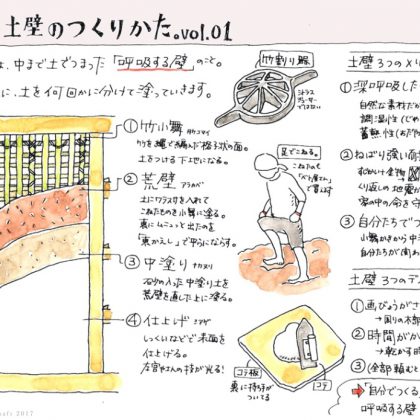 土壁のつくりかた。vol.01
は、中まで土でつまった「呼吸する壁」のこと。
に、土を何回かに分けて塗っていきます。
①竹小舞 タケコマイ
竹を縄で編んだ格子状の面。
土をつける下地になる。
②荒壁 アラカベ
土にワラスサを入れて
こねたものを小舞に塗る。
裏にムニュッと出たのを
「裏かえし」で平らにならす。
③中塗り ナカヌリ
石少の入った中塗り土を
荒壁を直した上に塗る。
④仕上げ シアゲ
しっくいなどで表面を
仕上げる。
左官やさんの技が光る!
竹割り器
足でこねる。
こねたもの
で買える
コテ板
裏に持手が
ついてる
コテ
土壁 3つのメリ
①深呼吸した
自然な素材だか
調湿性（じゃ
蓄熱性（おだや
②ねばり強い面
すじかいや金物→
くり返しの地震
家の中の命を守
③自分たちでつ
小舞かきから中
自分たちが関わ
土壁 3つのデ
①画びょうがさ
→周りの木部
②時間がか
→乾かす時
③(全部頼むと
→「自分でつくる
呼吸する壁
2017